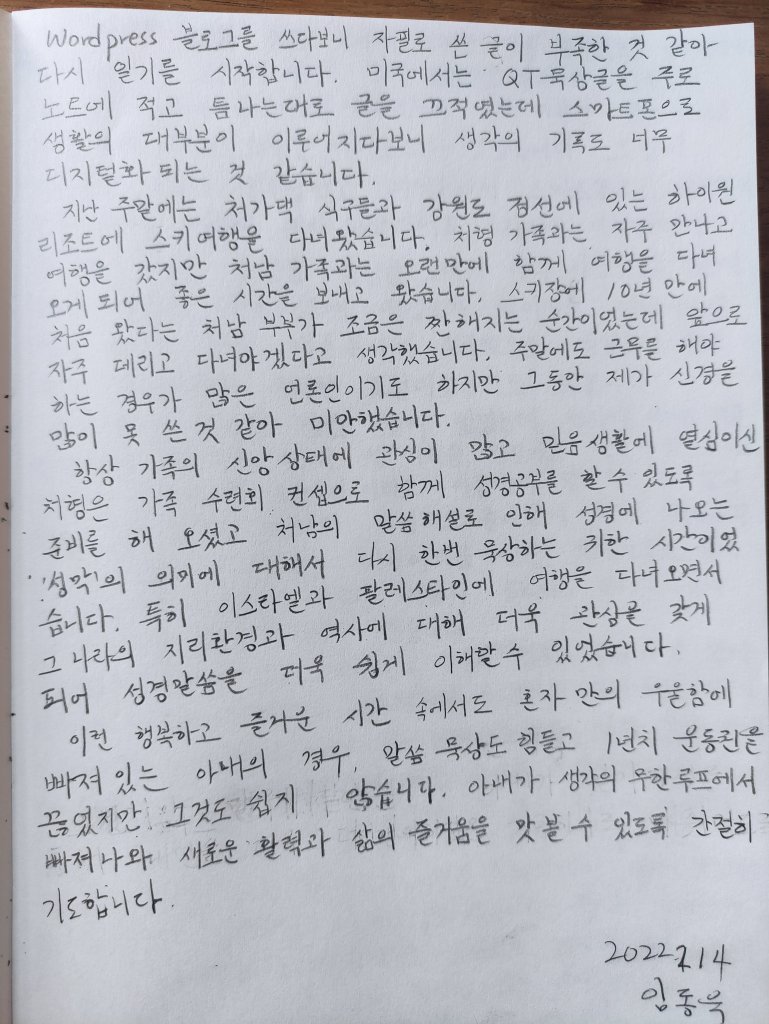 Wordpress 블로그를 쓰다보니 자필로 쓴 글이 부족한 것 같아
다시 일기를 시작합니다. 미국에서는 QT묵상글을 주로
노트에 적고 틈나는대로 글을 끄적였는데 스마트폰으로
생활의 대부분이 이루어지다보니 생각의 기록도 너무
디지털화 되는 것 같습니다.
지난 주말에는 처가댁 식구들과 강원도 정선에 있는 하이원
리조트에 스키여행을 다녀왔습니다. 처형 가족과는 자주 만나고
여행을 갔지만 처남 가족과는 오랜만에 함께 여행을 다녀
오게 되어 좋은 시간을 보내고 왔습니다. 스키장에 10년 만에
처음 왔다는 처남 부부가 조금은 짠해지는 순간이었는데 앞으로
자주 데리고 다녀야겠다고 생각했습니다. 주말에도 근무를 해야
하는 경우가 많은 언론인이기도 하지만 그동안 제가 신경을
많이 못 쓴 것 같아 미안했습니다.
항상 가족의 신앙상태에 관심이 많고 믿음생활에 열심이신
처형은 가족 수련회 컨셉으로 함께 성경공부를 할 수 있도록
준비를 해 오셨고 처남의 말씀 해설로 인해 성경에 나오는
'성막'의 의미에 대해서 다시 한번 묵상하는 귀한 시간이었
습니다. 특히 이스라엘과 팔레스타인에 여행을 다녀오면서
그 나라의 지리환경과 역사에 대해 더욱 관심을 갖게
되어 성경말씀을 더욱 쉽게 이해할 수 있었습니다.
이런 행복하고 즐거운 시간 속에서도 혼자만의 우울함에
빠져있는 아내의 경우, 말씀 묵상도 힘들고 1년치 운동권을
끊었지만 그것도 쉽지 않습니다. 아내가 생각의 무한루프에서
빠져나와 새로운 활력과 삶의 즐거움을 맛볼 수 있도록 간절히
기도합니다.
2022.1.14
임동욱